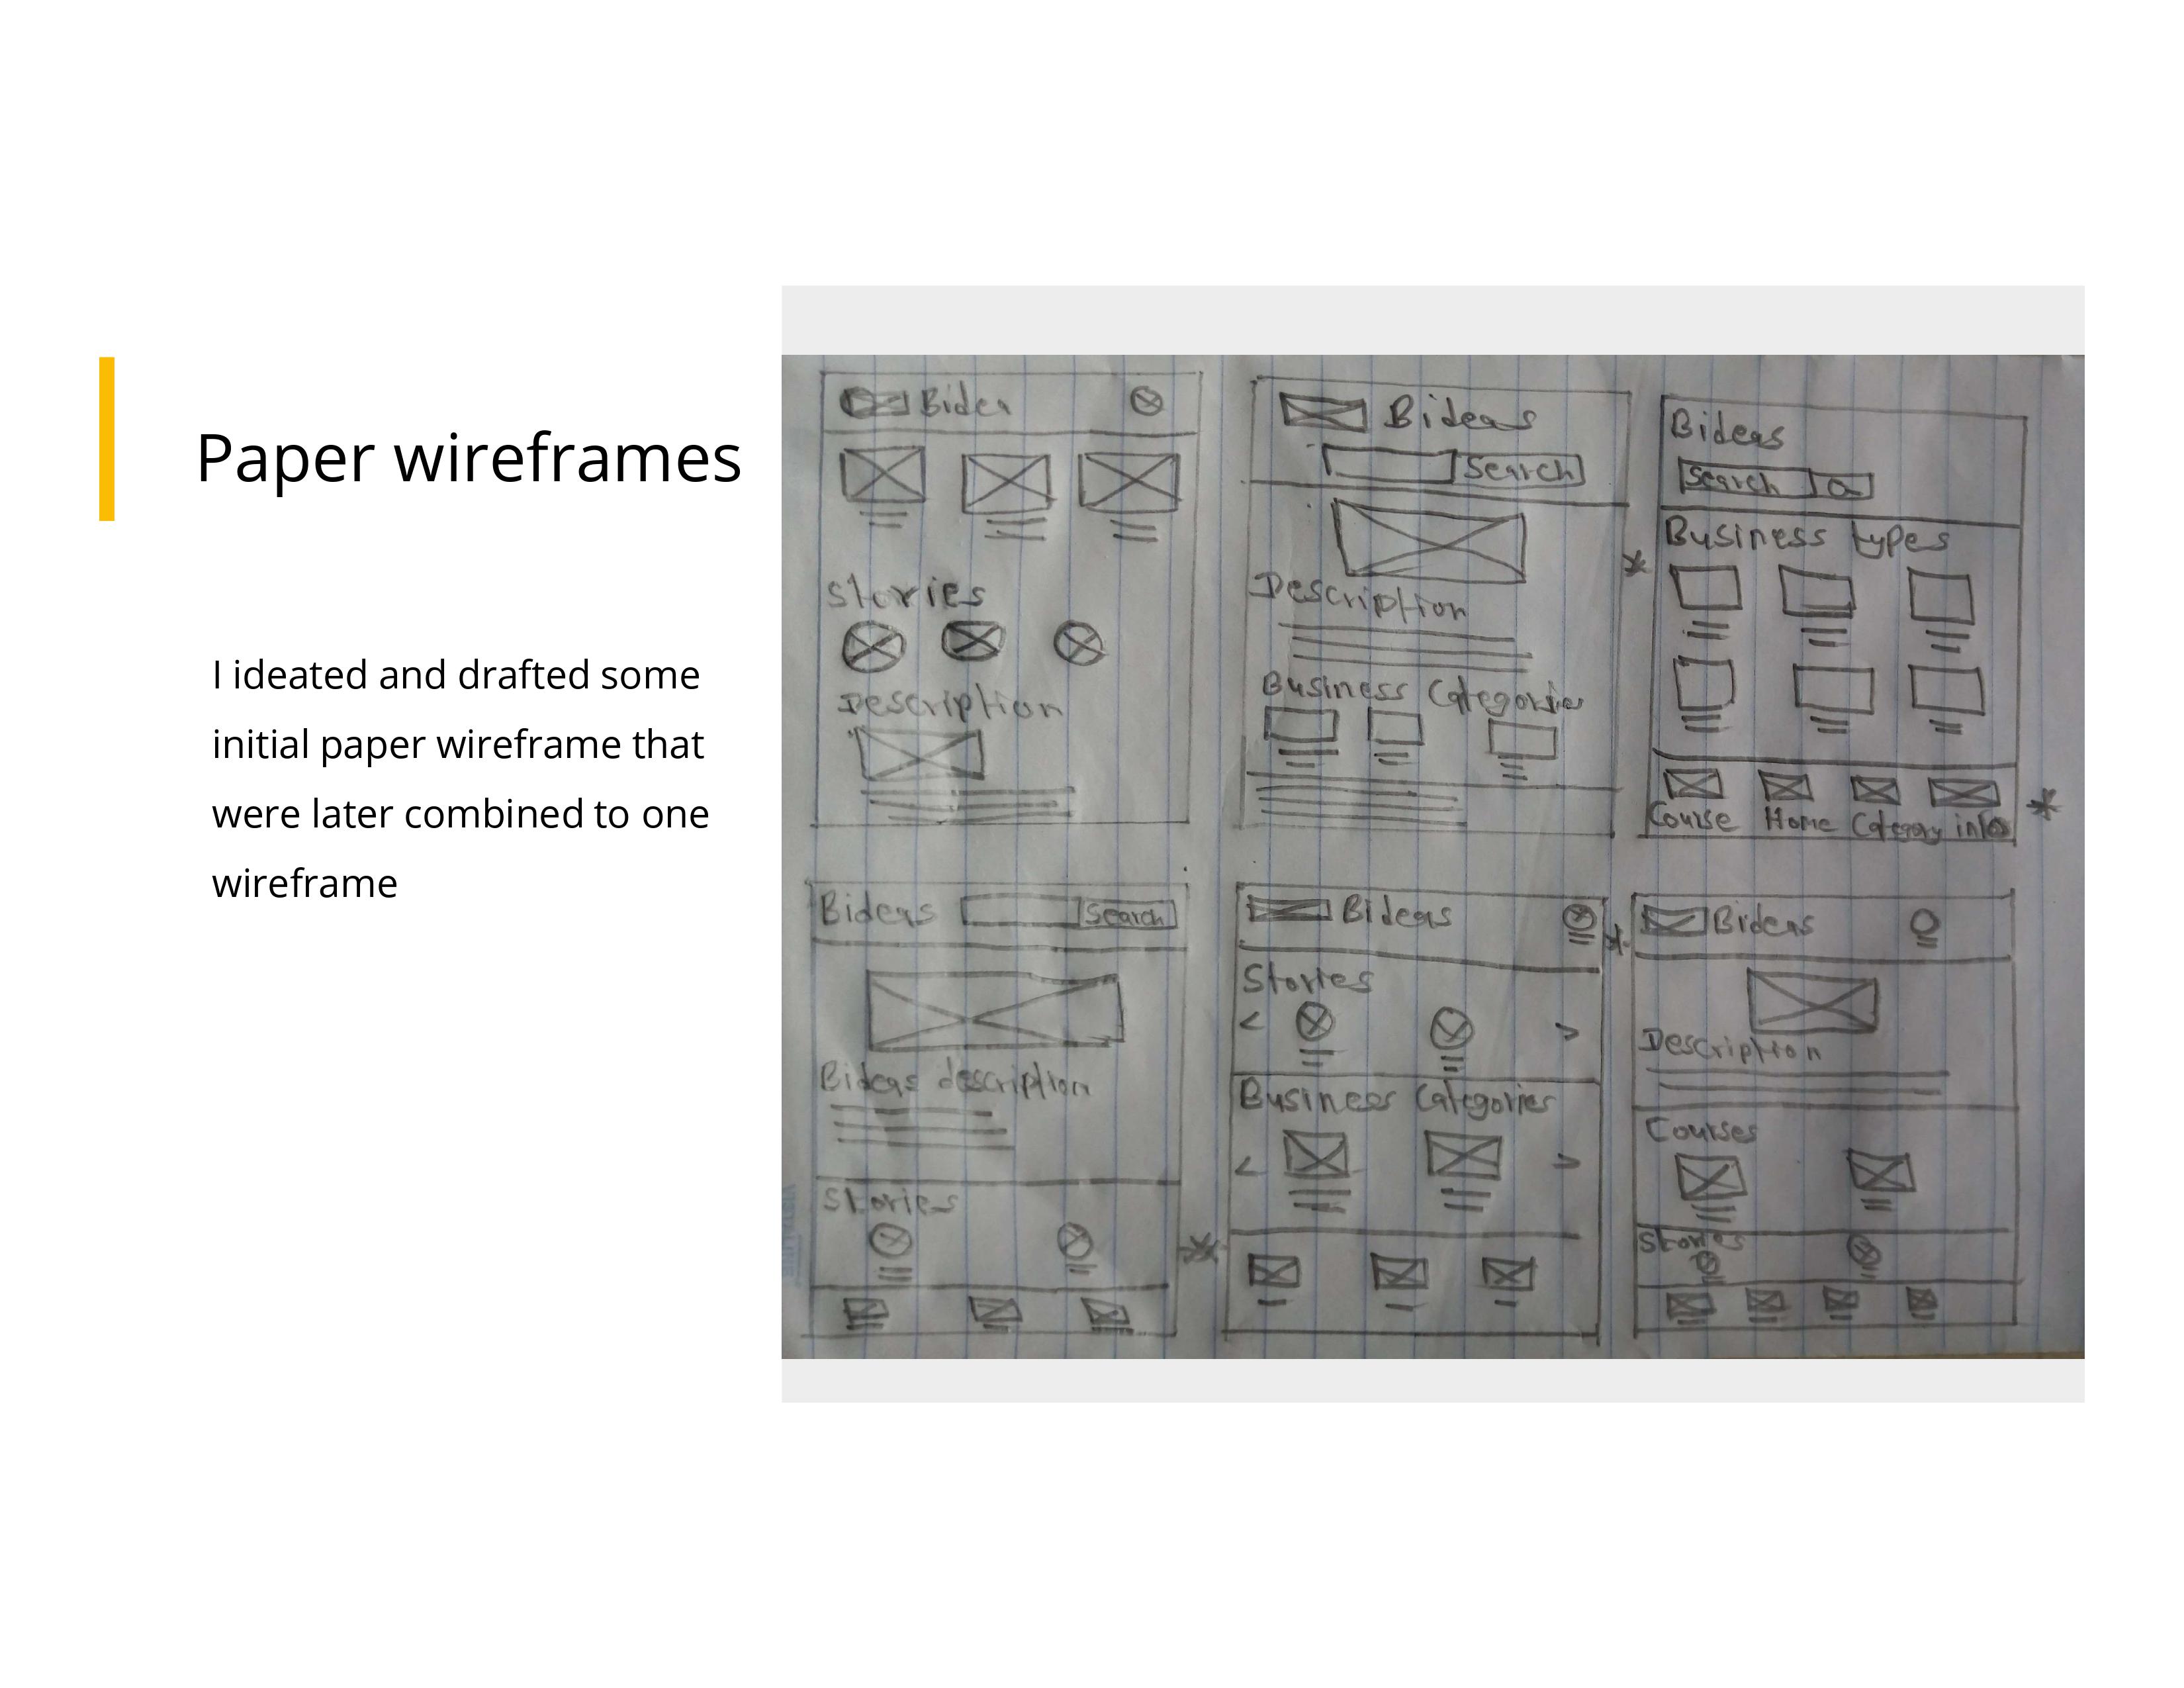 Paper wireframes
I ideated and drafted some
initial paper wireframe that
were later combined to one
wireframe
Bidea
Stories
Description
Bideas
Search
Description
Business Categories
Bideas
Search
Business types
Course Home Category info
Bideas Search
Bideas description
Stories
Bideas
Stories
< >
Business Categories
< >
Bideas
Description
Courses
Stories